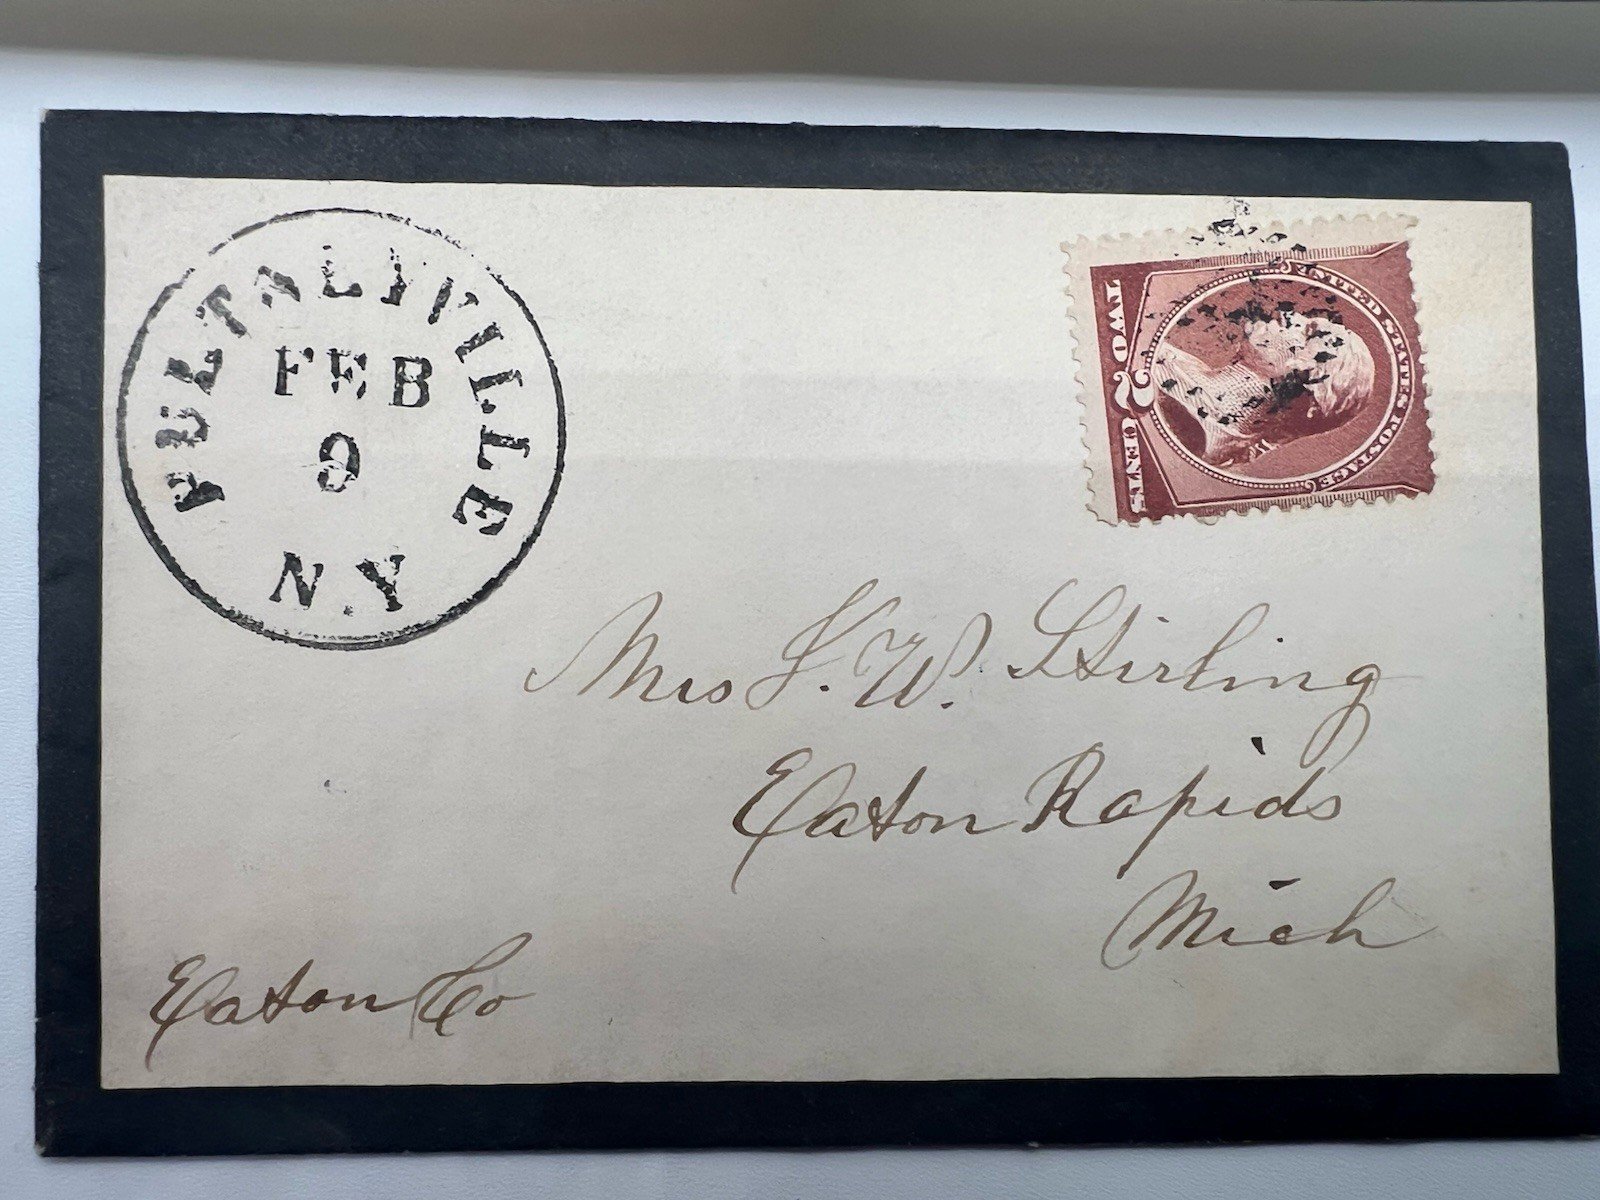 PULTNEYVILLE
FEB
9
N.Y
UNITED STATES POSTAGE
TWO 2 CENTS
Mrs S. W. Stirling
Eaton Rapids
Mich
Eaton Co